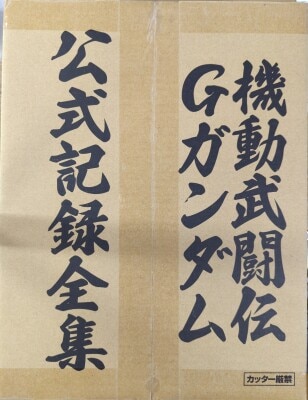 機動武闘伝
Gガンダム
公式記録全集
カッター厳禁